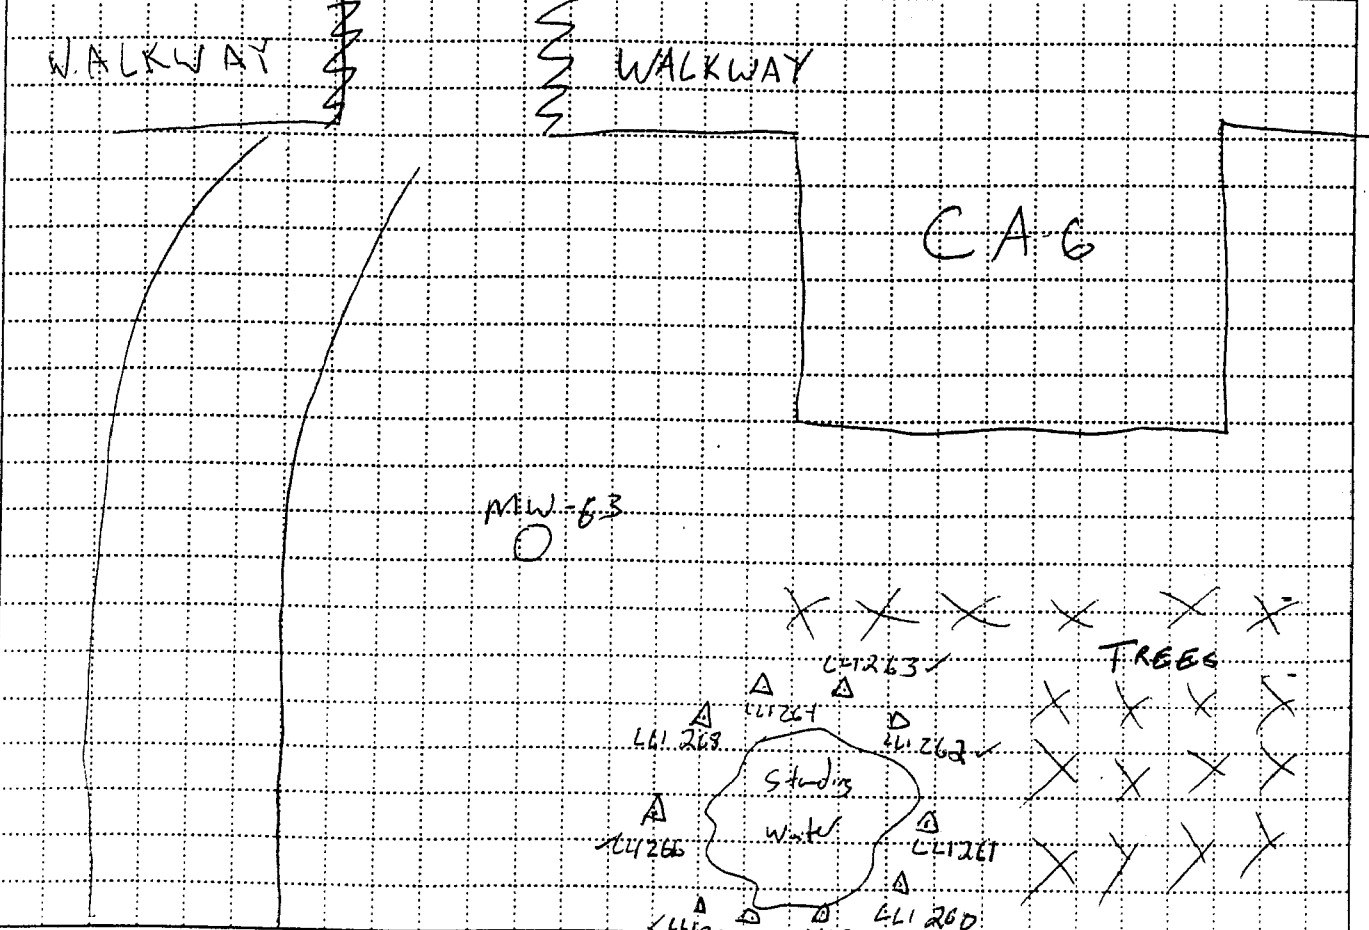 WALKWAY
WALKWAY
CA-6
MW-63
TREES
LL1263 ✓
LL1264
LL1 268
LL1 262 ✓
Standing
Water
✓ LL1266
LL1261
LL1 260